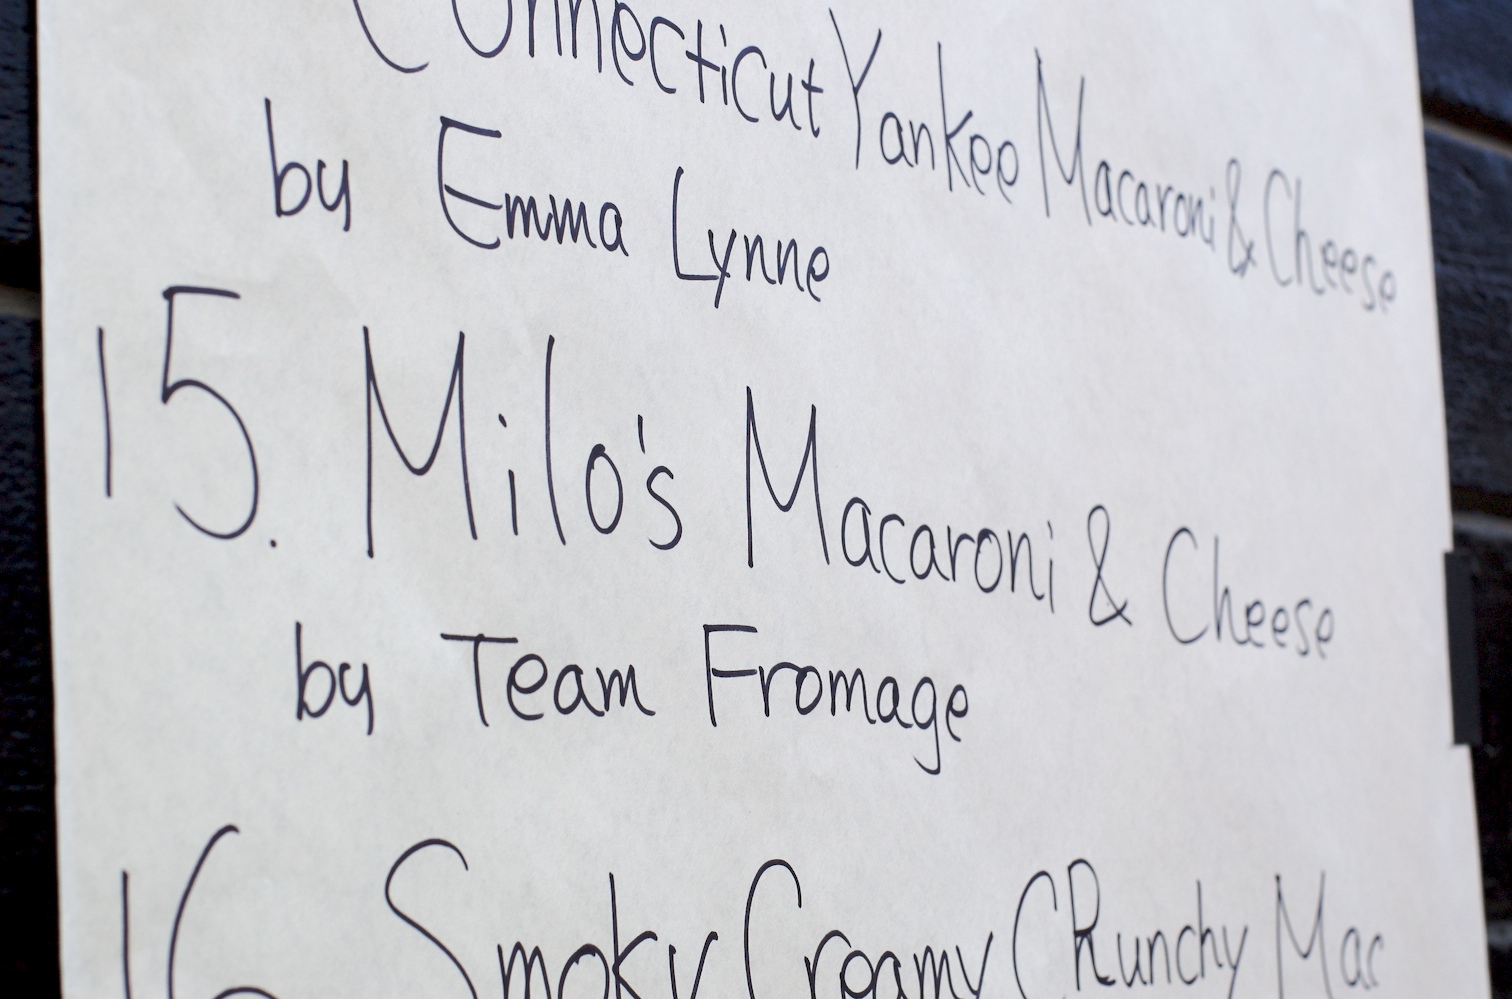 Connecticut Yankee Macaroni & Cheese
by Emma Lynne
15. Milo's Macaroni & Cheese
by Team Fromage
16 Smoky Creamy CRunchy Mac